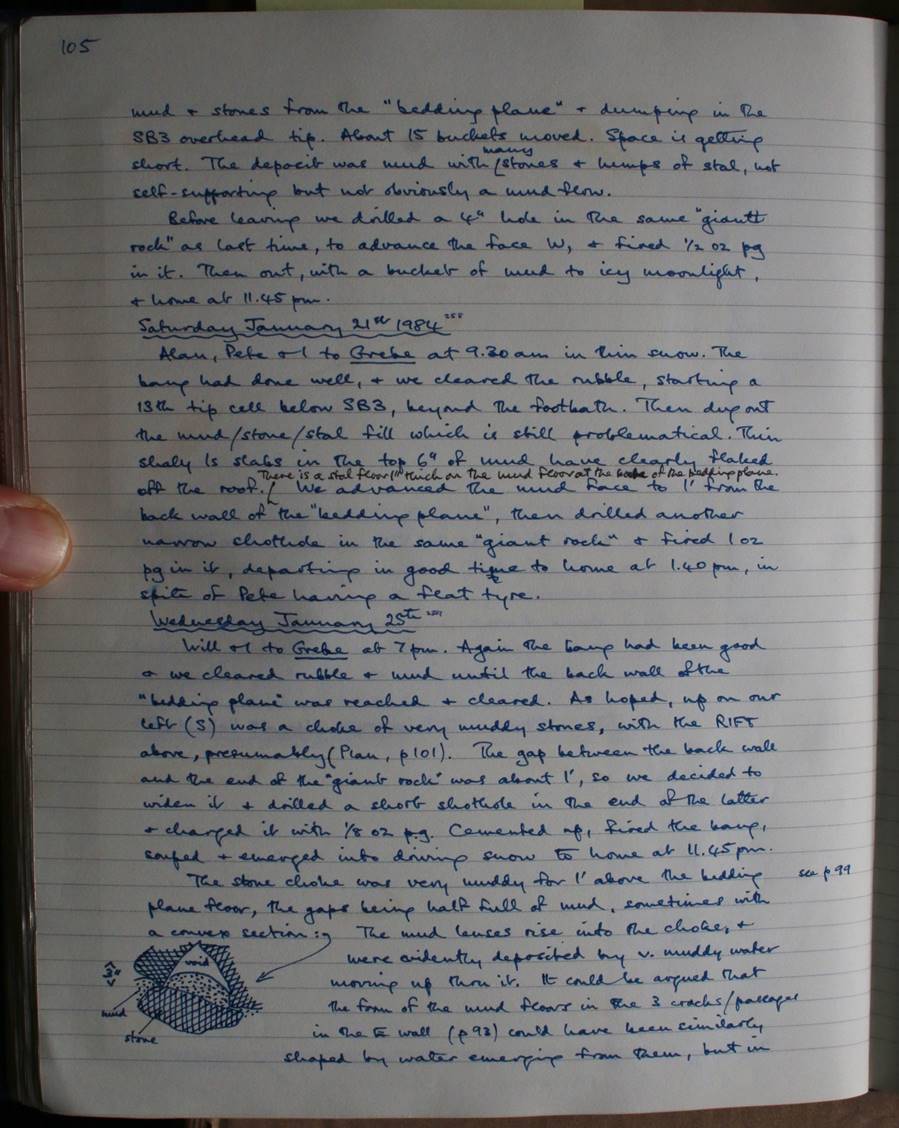 105
mud + stones from the "bedding plane" + dumping in the
SB3 overhead tip. About 15 buckets moved. Space is getting
many
short. The deposit was mud with stones + lumps of stal, not
self-supporting but not obviously a mud flow.
Before leaving we drilled a 4" hole in the same "giant
rock" as last time, to advance the face W, + fired 1/2 oz pg
in it. Then out, with a bucket of mud to icy moonlight,
+ home at 11.45 pm.
Saturday January 21st 1984
Alan, Pete + I to Grebe at 9.30 am in thin snow. The
bang had done well, + we cleared the rubble, starting a
13th tip cell below SB3, beyond the footbath. Then dug out
the mud/stone/stal fill which is still problematical. Thin
shaly ls slabs in the top 6" of mud have clearly flaked
There is a stal floor 1" thick on the mud floor at the back of the bedding plane.
off the roof. We advanced the mud face to 1' from the
back wall of the "bedding plane", then drilled another
narrow shothole in the same "giant rock" + fired 1 oz
pg in it, departing in good time to home at 1.40 pm, in
spite of Pete having a flat tyre.
Wednesday January 25th
Will + I to Grebe at 7 pm. Again the bang had been good
+ we cleared rubble + mud until the back wall of the
"bedding plane" was reached + cleared. As hoped, up on our
left (S) was a choke of very muddy stones, with the RIFT
above, presumably (Plan, p101). The gap between the back wall
and the end of the "giant rock" was about 1', so we decided to
widen it + drilled a short shothole in the end of the latter
+ charged it with 1/8 oz pg. Cemented up, fired the bang,
souped + emerged into driving snow to home at 11.45 pm.
The stone choke was very muddy for 1' above the bedding see p 99
plane floor, the gaps being half full of mud, sometimes with
a convex section: The mud lenses rise into the choke, +
were evidently deposited by v. muddy water
moving up thru it. It could be argued that
the form of the mud floors in the 3 cracks/passages
in the E wall (p 93) could have been similarly
shaped by water emerging from them, but in
void
3"
mud
stone